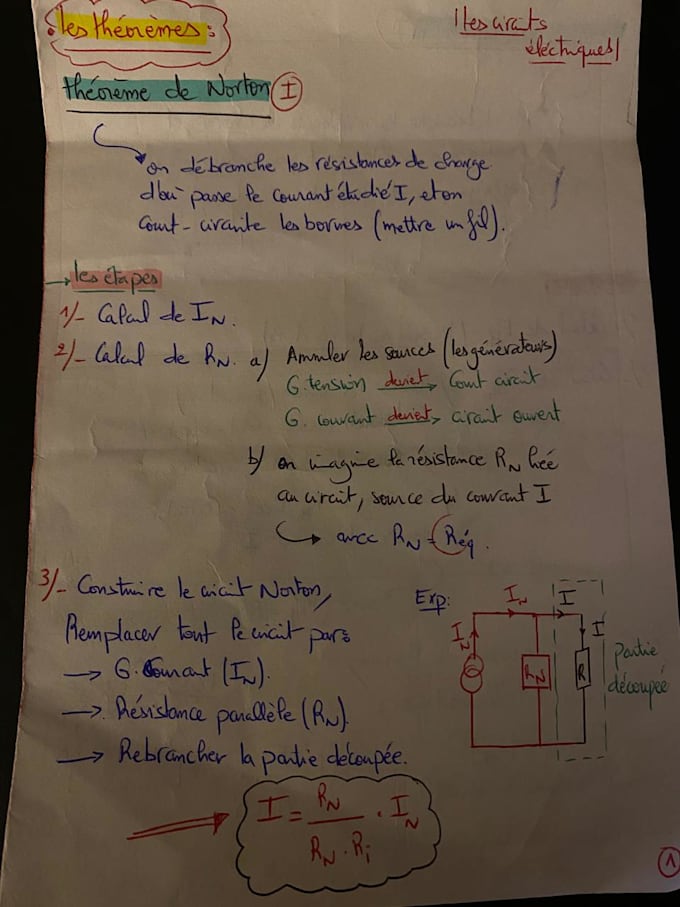 les théorèmes:
les circuits
électriques
théorème de Norton I
on débranche les résistances de charge
d'où passe le courant étudié I, et on
court-circuite les bornes (mettre un fil).
→ les étapes
1/- Calcul de I_N.
2/- Calcul de R_N. a/ Annuler les sources (les générateurs)
G. tension devient → Court circuit
G. courant devient → circuit ouvert
b/ on imagine la résistance R_N liée
au circuit, source du courant I
↪ avec R_N = Réq.
3/- Construire le circuit Norton,
Remplacer tout le circuit par:
→ G. Courant (I_N).
→ Résistance parallèle (R_N).
→ Rebrancher la partie découpée.
Exp:
I_N
I
I_N
R_N
R
I
partie
découpée
⇒ I = R_N / (R_N . R_i) . I_N
1